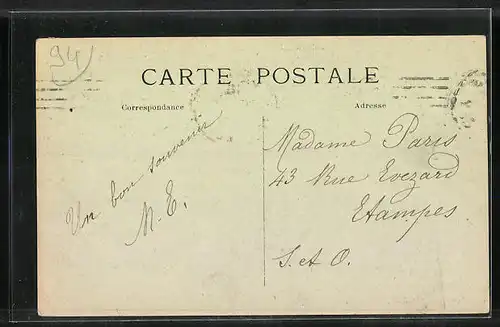 94
CARTE POSTALE
Correspondance
Adresse
Un bon souvenir
M. E.
Madame Paris
43 Rue Evezard
Etampes
S. et O.